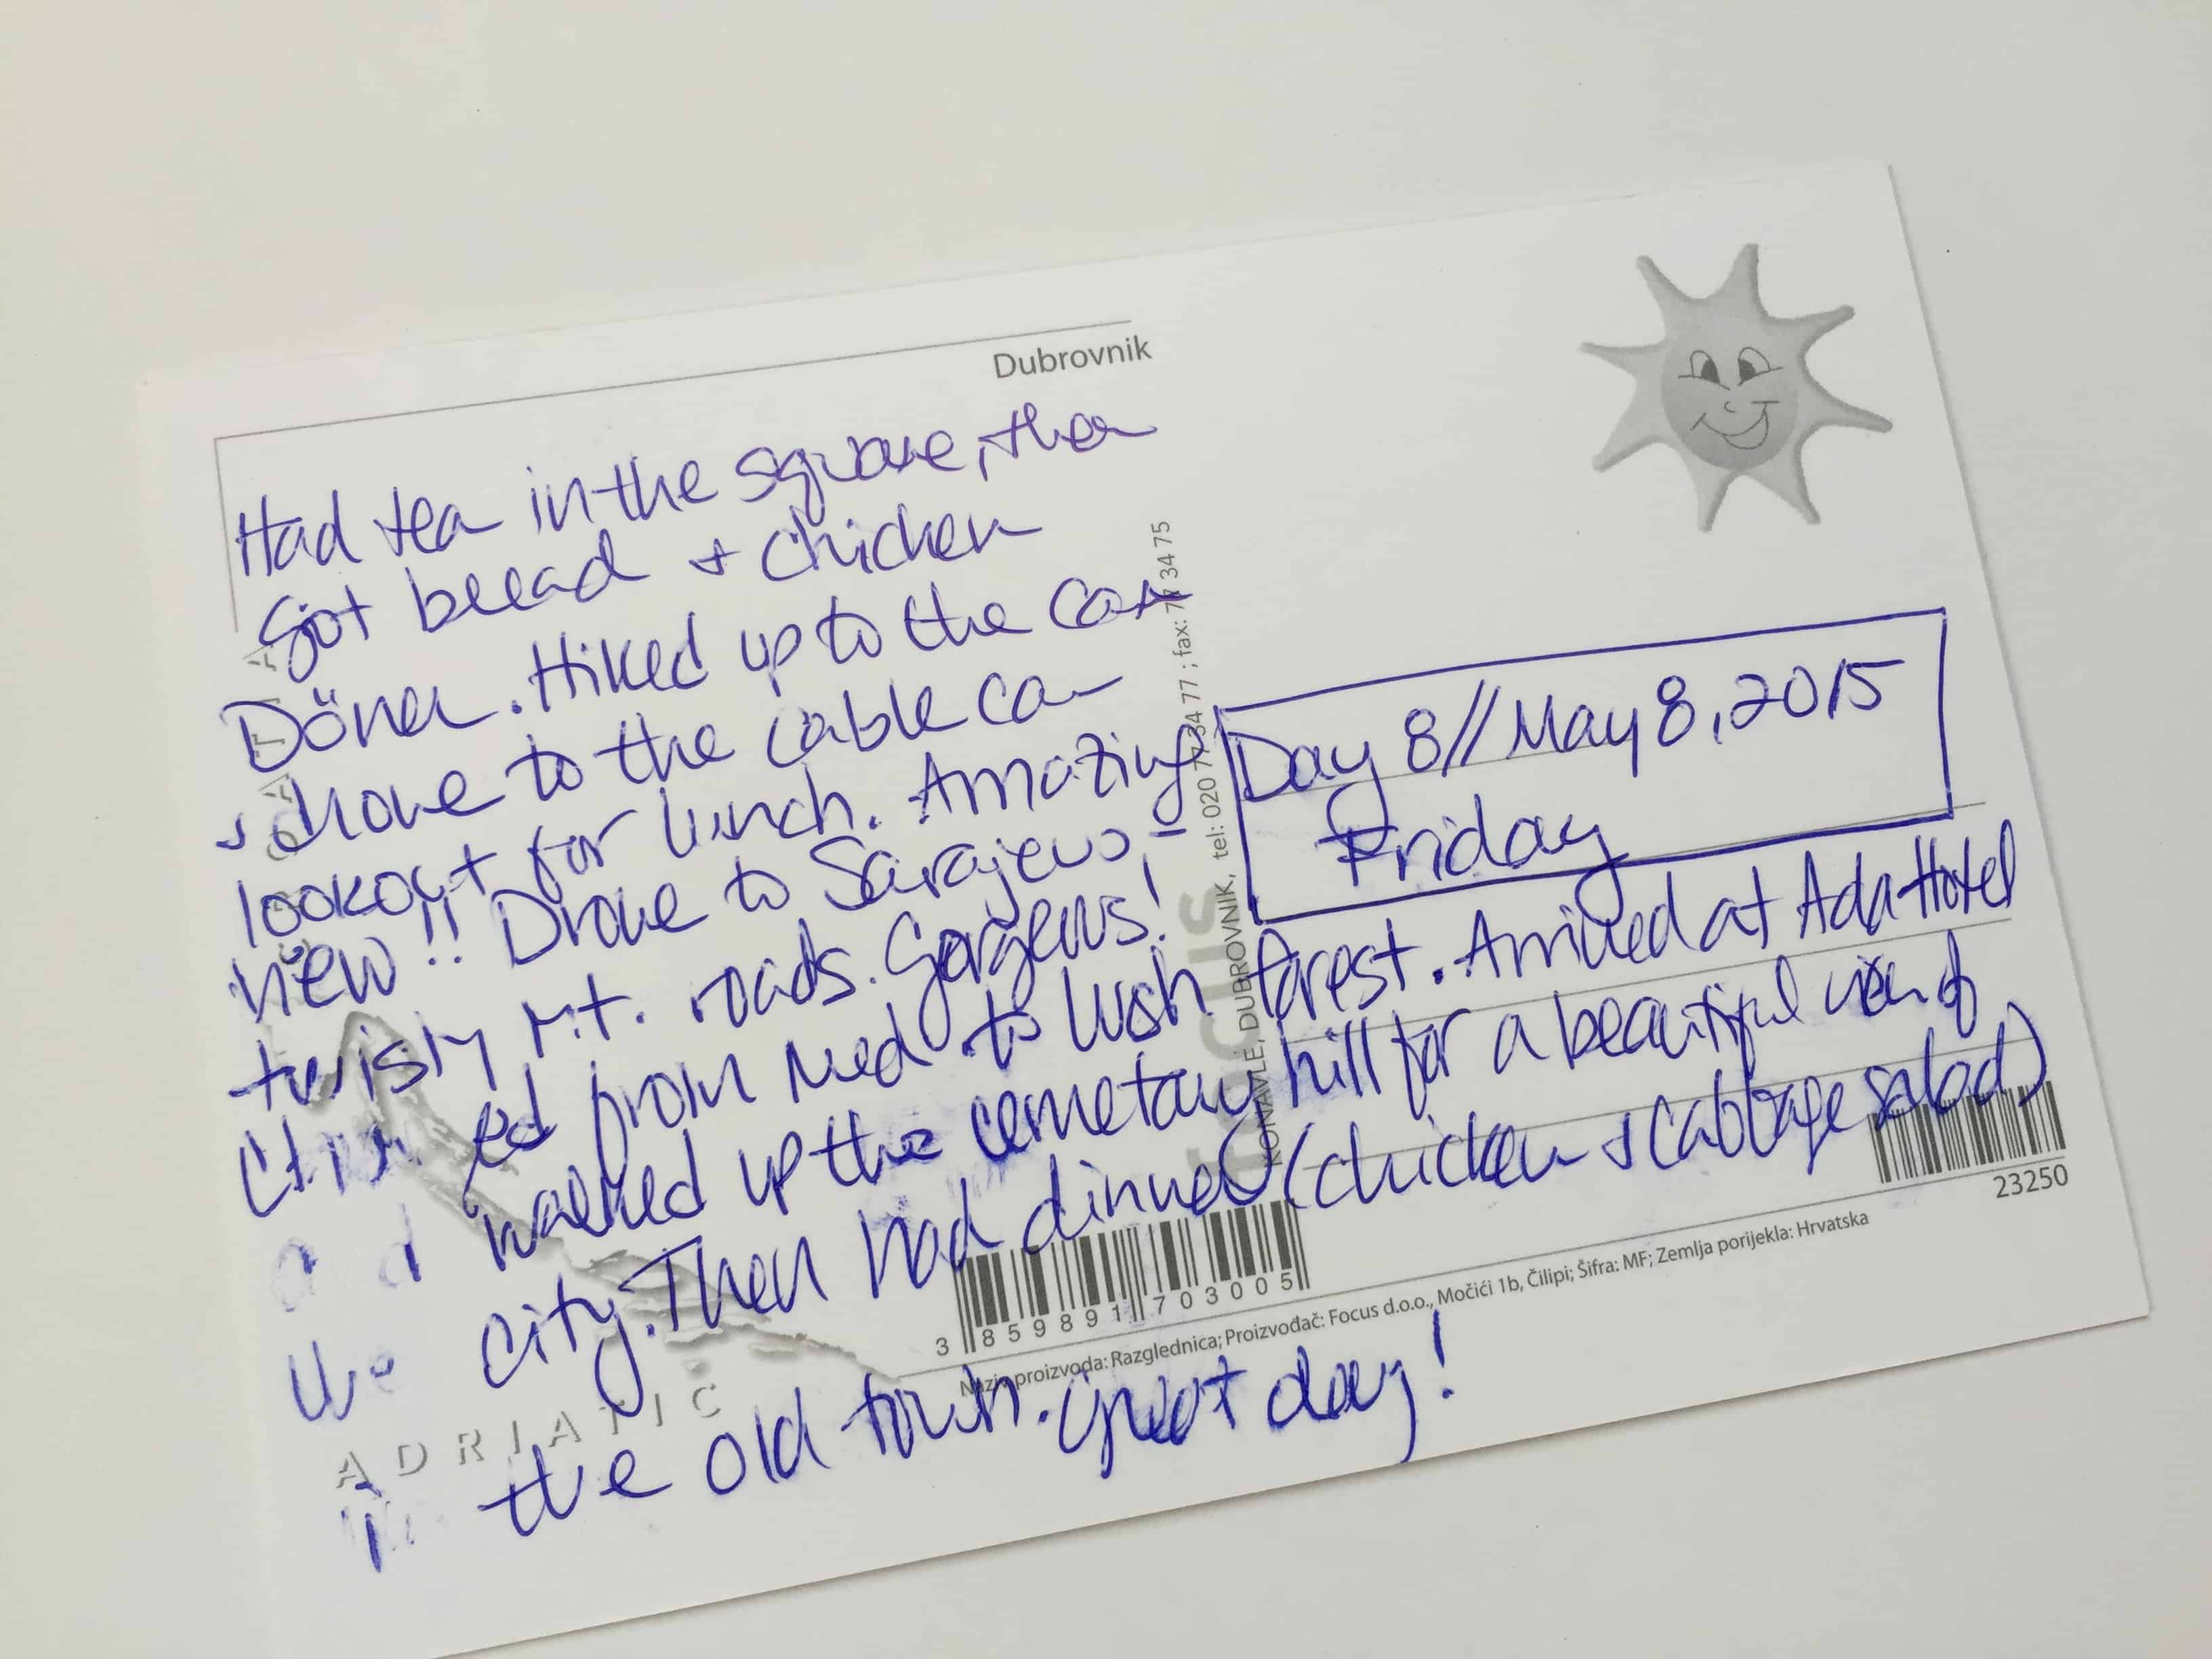 Dubrovnik
Had tea in the square, then
got bread + chicken
Döner. Hiked up to the car
+ drove to the cable car
lookout for lunch. Amazing
view!! Drove to Sarajevo -
twisty mt. roads. Gorgeous!
Changed from Med. to lush forest. Arrived at Ada Hotel
and walked up the cemetary hill for a beautiful view of
the city. Then had dinner (chicken + cabbage salad)
in the old town. Great day!
Day 8 // May 8, 2015
Friday
KONAVLE, DUBROVNIK, tel: 020 77 34 77 ; fax: 77 34 75
ADRIATIC
CROATIA
3 859891 703005
23250
Naziv proizvoda: Razglednica; Proizvođač: Focus d.o.o., Močići 1b, Čilipi; Šifra: MF; Zemlja porijekla: Hrvatska